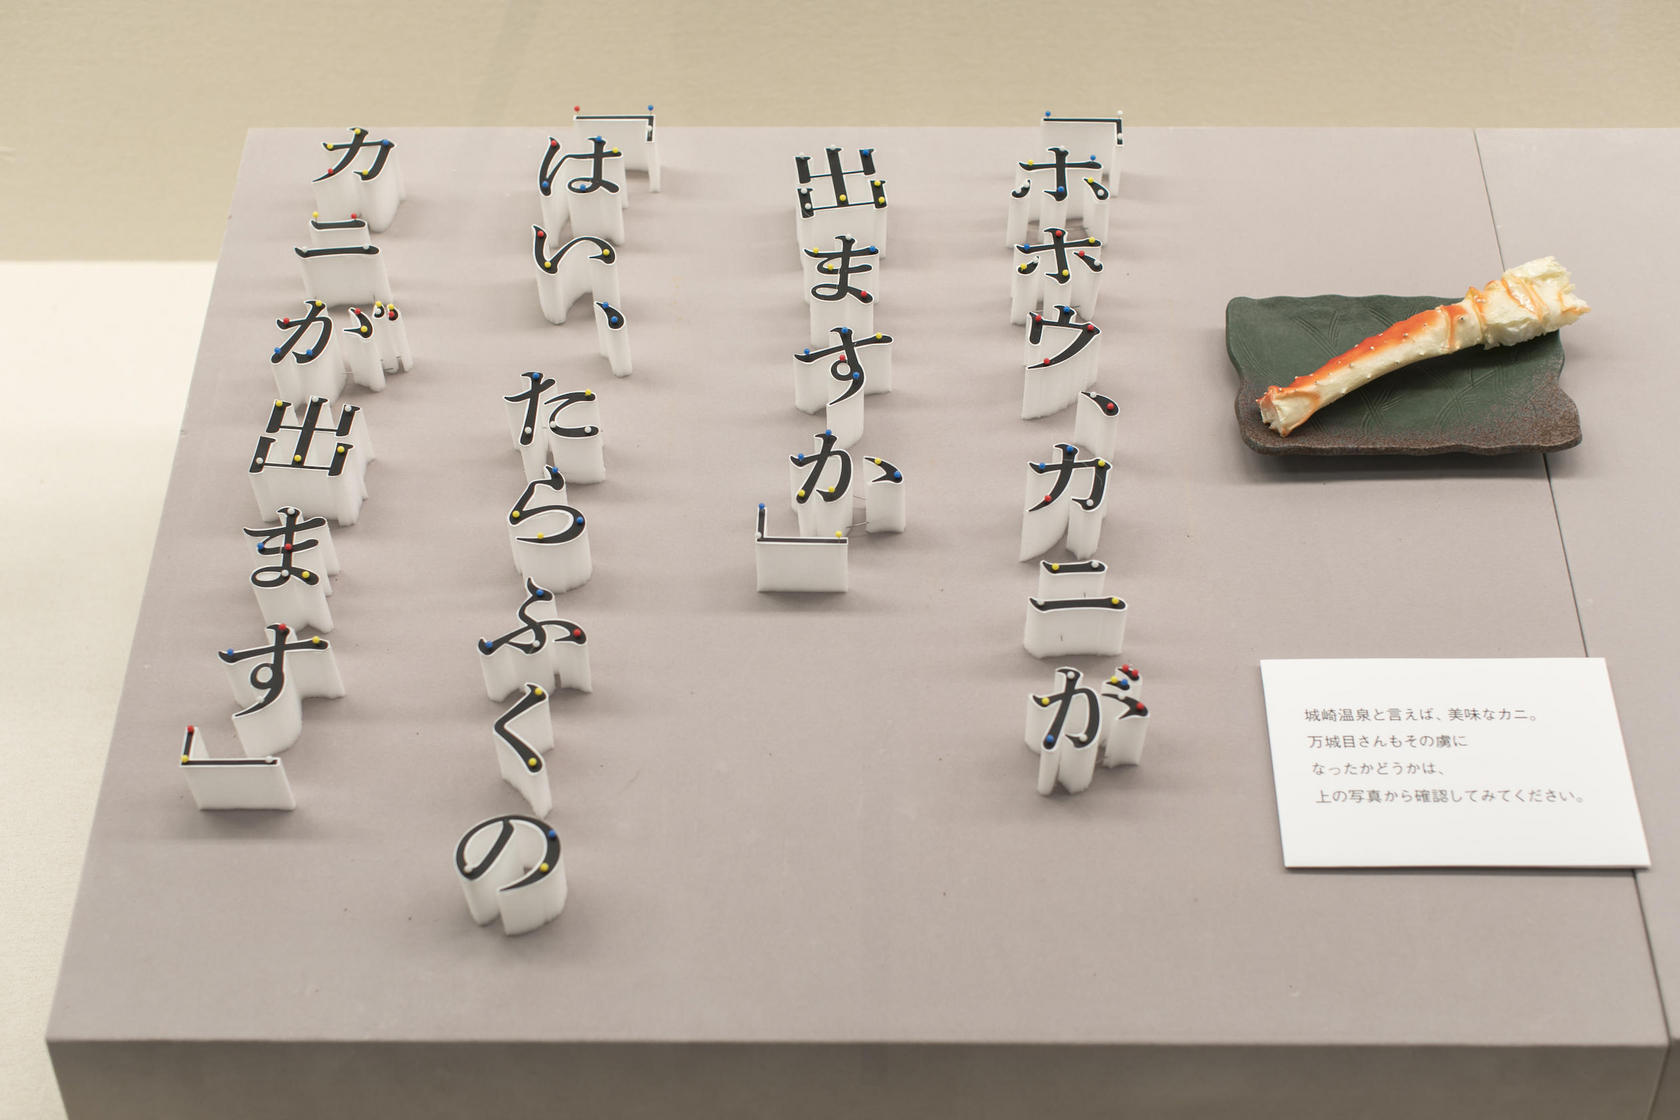 「ホホウ、カニが
出ますか」
「はい、たらふくの
カニが出ます」
城崎温泉と言えば、美味なカニ。
万城目さんもその虜に
なったかどうかは、
上の写真から確認してみてください。